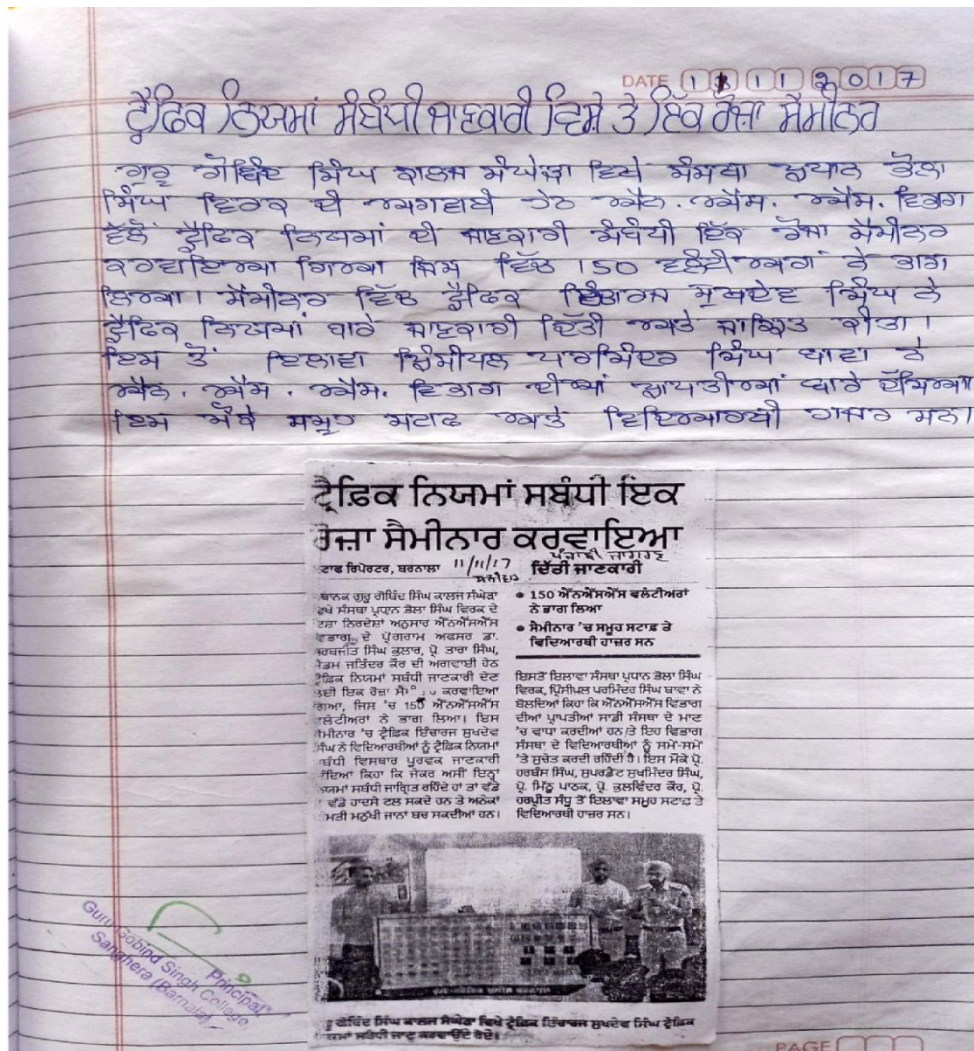 DATE 11 11 2017
ਟ੍ਰੈਫਿਕ ਨਿਯਮਾਂ ਸੰਬੰਧੀ ਜਾਣਕਾਰੀ ਵਿਸ਼ੇ ਤੇ ਇਕ ਰੋਜ਼ਾ ਸੈਮੀਨਰ
ਗੁਰੂ ਗੋਬਿੰਦ ਸਿੰਘ ਕਾਲਜ ਸੰਘੇੜਾ ਵਿਖੇ ਸੰਸਥਾ ਪ੍ਰਧਾਨ ਭੋਲਾ
ਸਿੰਘ ਵਿਰਕ ਦੀ ਅਗਵਾਈ ਹੇਠ ਐਨ. ਐਸ. ਐਸ. ਵਿਭਾਗ
ਵੱਲੋਂ ਟ੍ਰੈਫਿਕ ਨਿਯਮਾਂ ਦੀ ਜਾਣਕਾਰੀ ਸੰਬੰਧੀ ਇੱਕ ਰੋਜਾ ਸੈਮੀਨਰ
ਕਰਵਾਇਆ ਗਿਆ ਜਿਸ ਵਿੱਚ 150 ਵਲੰਟੀਅਰਾਂ ਨੇ ਭਾਗ
ਲਿਆ। ਸੈਮੀਨਰ ਵਿੱਚ ਟ੍ਰੈਫਿਕ ਇੰਚਾਰਜ ਸੁਖਦੇਵ ਸਿੰਘ ਨੇ
ਟ੍ਰੈਫਿਕ ਨਿਯਮਾਂ ਬਾਰੇ ਜਾਣਕਾਰੀ ਦਿੱਤੀ ਅਤੇ ਜਾਗ੍ਰਿਤ ਕੀਤਾ।
ਇਸ ਤੋਂ ਇਲਾਵਾ ਪ੍ਰਿੰਸੀਪਲ ਪਰਮਿੰਦਰ ਸਿੰਘ ਬਾਵਾ ਨੇ
ਐਨ. ਐਸ. ਐਸ. ਵਿਭਾਗ ਦੀਆਂ ਪ੍ਰਾਪਤੀਆਂ ਬਾਰੇ ਦੱਸਿਆ
ਇਸ ਮੌਕੇ ਸਮੂਹ ਸਟਾਫ ਅਤੇ ਵਿਦਿਆਰਥੀ ਹਾਜਰ ਸਨ
ਟ੍ਰੈਫ਼ਿਕ ਨਿਯਮਾਂ ਸਬੰਧੀ ਇਕ
ਰੋਜ਼ਾ ਸੈਮੀਨਾਰ ਕਰਵਾਇਆ
ਪੰਜਾਬੀ ਜਾਗਰਣ
ਟਾਫ ਰਿਪੋਰਟਰ, ਬਰਨਾਲਾ 11/11/17
ਥਾਨਕ ਗੁਰੂ ਗੋਬਿੰਦ ਸਿੰਘ ਕਾਲਜ ਸੰਘੇੜਾ
ਵਿਖੇ ਸੰਸਥਾ ਪ੍ਰਧਾਨ ਭੋਲਾ ਸਿੰਘ ਵਿਰਕ ਦੇ
ਨਿਰਦੇਸ਼ਾਂ ਅਨੁਸਾਰ ਐੱਨਐੱਸਐੱਸ
ਵਿਭਾਗ ਦੇ ਪ੍ਰੋਗਰਾਮ ਅਫਸਰ ਡਾ.
ਰਬਜੀਤ ਸਿੰਘ ਕੁਲਾਰ, ਪ੍ਰੋ. ਤਾਰਾ ਸਿੰਘ,
ਮੈਡਮ ਜਤਿੰਦਰ ਕੌਰ ਦੀ ਅਗਵਾਈ ਹੇਠ
ਟ੍ਰੈਫਿਕ ਨਿਯਮਾਂ ਸਬੰਧੀ ਜਾਣਕਾਰੀ ਦੇਣ
ਲਈ ਇਕ ਰੋਜ਼ਾ ਕਰਵਾਇਆ
ਗਿਆ, ਜਿਸ 'ਚ 150 ਐੱਨਐੱਸਐੱਸ
ਵਲੰਟੀਅਰਾਂ ਨੇ ਭਾਗ ਲਿਆ। ਇਸ
ਸੈਮੀਨਾਰ 'ਚ ਟ੍ਰੈਫਿਕ ਇੰਚਾਰਜ ਸੁਖਦੇਵ
ਸਿੰਘ ਨੇ ਵਿਦਿਆਰਥੀਆਂ ਨੂੰ ਟ੍ਰੈਫਿਕ ਨਿਯਮਾਂ
ਸਬੰਧੀ ਵਿਸਥਾਰ ਪੂਰਵਕ ਜਾਣਕਾਰੀ
ਦਿੰਦਿਆਂ ਕਿਹਾ ਕਿ ਜੇਕਰ ਅਸੀਂ ਇਨ੍ਹਾਂ
ਨਿਯਮਾਂ ਸਬੰਧੀ ਜਾਗ੍ਰਿਤ ਰਹਿੰਦੇ ਹਾਂ ਤਾਂ ਵੱਡੇ
ਵੱਡੇ ਹਾਦਸੇ ਟਲ ਸਕਦੇ ਹਨ ਤੇ ਅਨੇਕਾਂ
ਕੀਮਤੀ ਮਨੁੱਖੀ ਜਾਨਾਂ ਬਚ ਸਕਦੀਆਂ ਹਨ।
ਦਿੱਤੀ ਜਾਣਕਾਰੀ
● 150 ਐੱਨਐੱਸਐੱਸ ਵਲੰਟੀਅਰਾਂ
ਨੇ ਭਾਗ ਲਿਆ
● ਸੈਮੀਨਾਰ 'ਚ ਸਮੂਹ ਸਟਾਫ਼ ਤੇ
ਵਿਦਿਆਰਥੀ ਹਾਜ਼ਰ ਸਨ
ਇਸਤੋਂ ਇਲਾਵਾ ਸੰਸਥਾ ਪ੍ਰਧਾਨ ਭੋਲਾ ਸਿੰਘ
ਵਿਰਕ, ਪ੍ਰਿੰਸੀਪਲ ਪਰਮਿੰਦਰ ਸਿੰਘ ਬਾਵਾ ਨੇ
ਬੋਲਦਿਆਂ ਕਿਹਾ ਕਿ ਐੱਨਐੱਸਐੱਸ ਵਿਭਾਗ
ਦੀਆਂ ਪ੍ਰਾਪਤੀਆਂ ਸਾਡੀ ਸੰਸਥਾ ਦੇ ਮਾਣ
'ਚ ਵਾਧਾ ਕਰਦੀਆਂ ਹਨ ਤੇ ਇਹ ਵਿਭਾਗ
ਸੰਸਥਾ ਦੇ ਵਿਦਿਆਰਥੀਆਂ ਨੂੰ ਸਮੇਂ-ਸਮੇਂ
'ਤੇ ਸੁਚੇਤ ਕਰਦੀ ਰਹਿੰਦੀ ਹੈ। ਇਸ ਮੌਕੇ ਪ੍ਰੋ.
ਹਰਬੰਸ ਸਿੰਘ, ਸੁਪਰਡੈਂਟ ਸੁਖਮਿੰਦਰ ਸਿੰਘ,
ਪ੍ਰੋ. ਮਿੱਠੂ ਪਾਠਕ, ਪ੍ਰੋ. ਕੁਲਵਿੰਦਰ ਕੌਰ, ਪ੍ਰੋ.
ਹਰਪ੍ਰੀਤ ਸੰਧੂ ਤੋਂ ਇਲਾਵਾ ਸਮੂਹ ਸਟਾਫ਼ ਤੇ
ਵਿਦਿਆਰਥੀ ਹਾਜ਼ਰ ਸਨ।
ਗੋਬਿੰਦ ਸਿੰਘ ਕਾਲਜ ਸੰਘੇੜਾ ਵਿਖੇ ਟ੍ਰੈਫਿਕ ਇੰਚਾਰਜ ਸੁਖਦੇਵ ਸਿੰਘ ਟ੍ਰੈਫਿਕ
ਨਿਯਮਾਂ ਸਬੰਧੀ ਜਾਣੂ ਕਰਵਾਉਂਦੇ ਹੋਏ।
Principal
Guru Gobind Singh College
Sanghera (Barnala)
PAGE